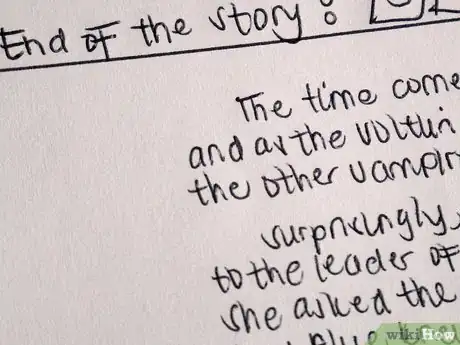 End OF the story :
The time come
and as the voltuin
the other vampir
surprisingly,
to the leader of
she asked the
wikiHow